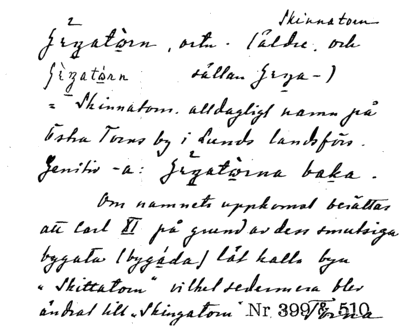 Skinnatorn
ortn. (äldre och
sällan
= Skinnatorn. alldagligt namn på
Östra Torns by i Lunds landsförs.
Genitiv -a: baka.
Om namnets uppkomst berättas
att Carl XI på grund av dess smutsiga
bygata (bygáda) lät kalla byn
"Skittatorn" vilket sedermera blev
ändrat till "Skingatorn" Nr 399 s. 510